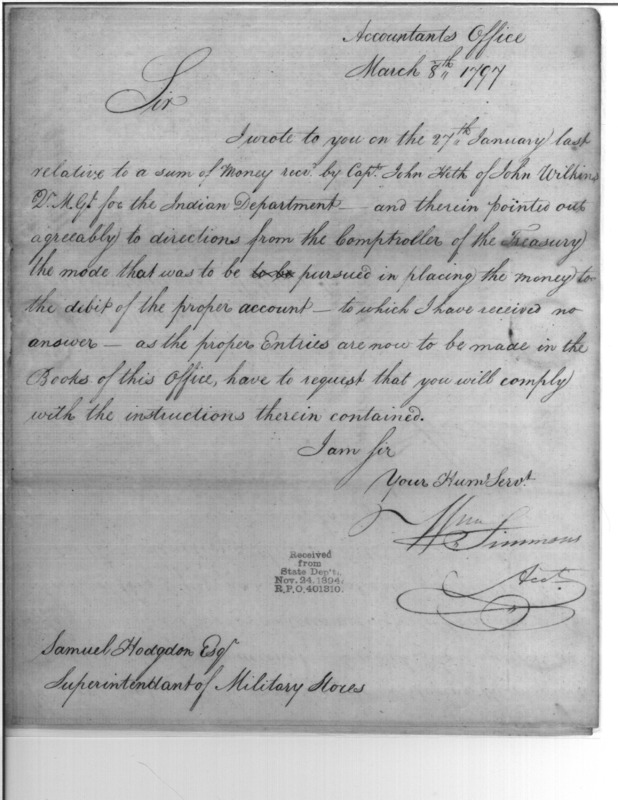 Accountants Office
March 8th 1797
Sir
I wrote to you on the 27th January last
relative to a sum of Money recd. by Capt. John Heth of John Wilkins
Q.M.Gl. for the Indian Department — and therein pointed out
agreeably to directions from the Comptroller of the Treasury
the mode that was to be to be pursued in placing the money to
the debit of the proper account — to which I have received no
answer — as the proper Entries are now to be made in the
Books of this Office, have to request that you will comply
with the instructions therein contained.
I am Sir
Your Huml. Servt.
Wm Simmons
Acct.
Received
from
State Dep't.
Nov. 24, 1894.
R.P.O. 401310.
Samuel Hodgdon Esqr
Superintendant of Military Stores